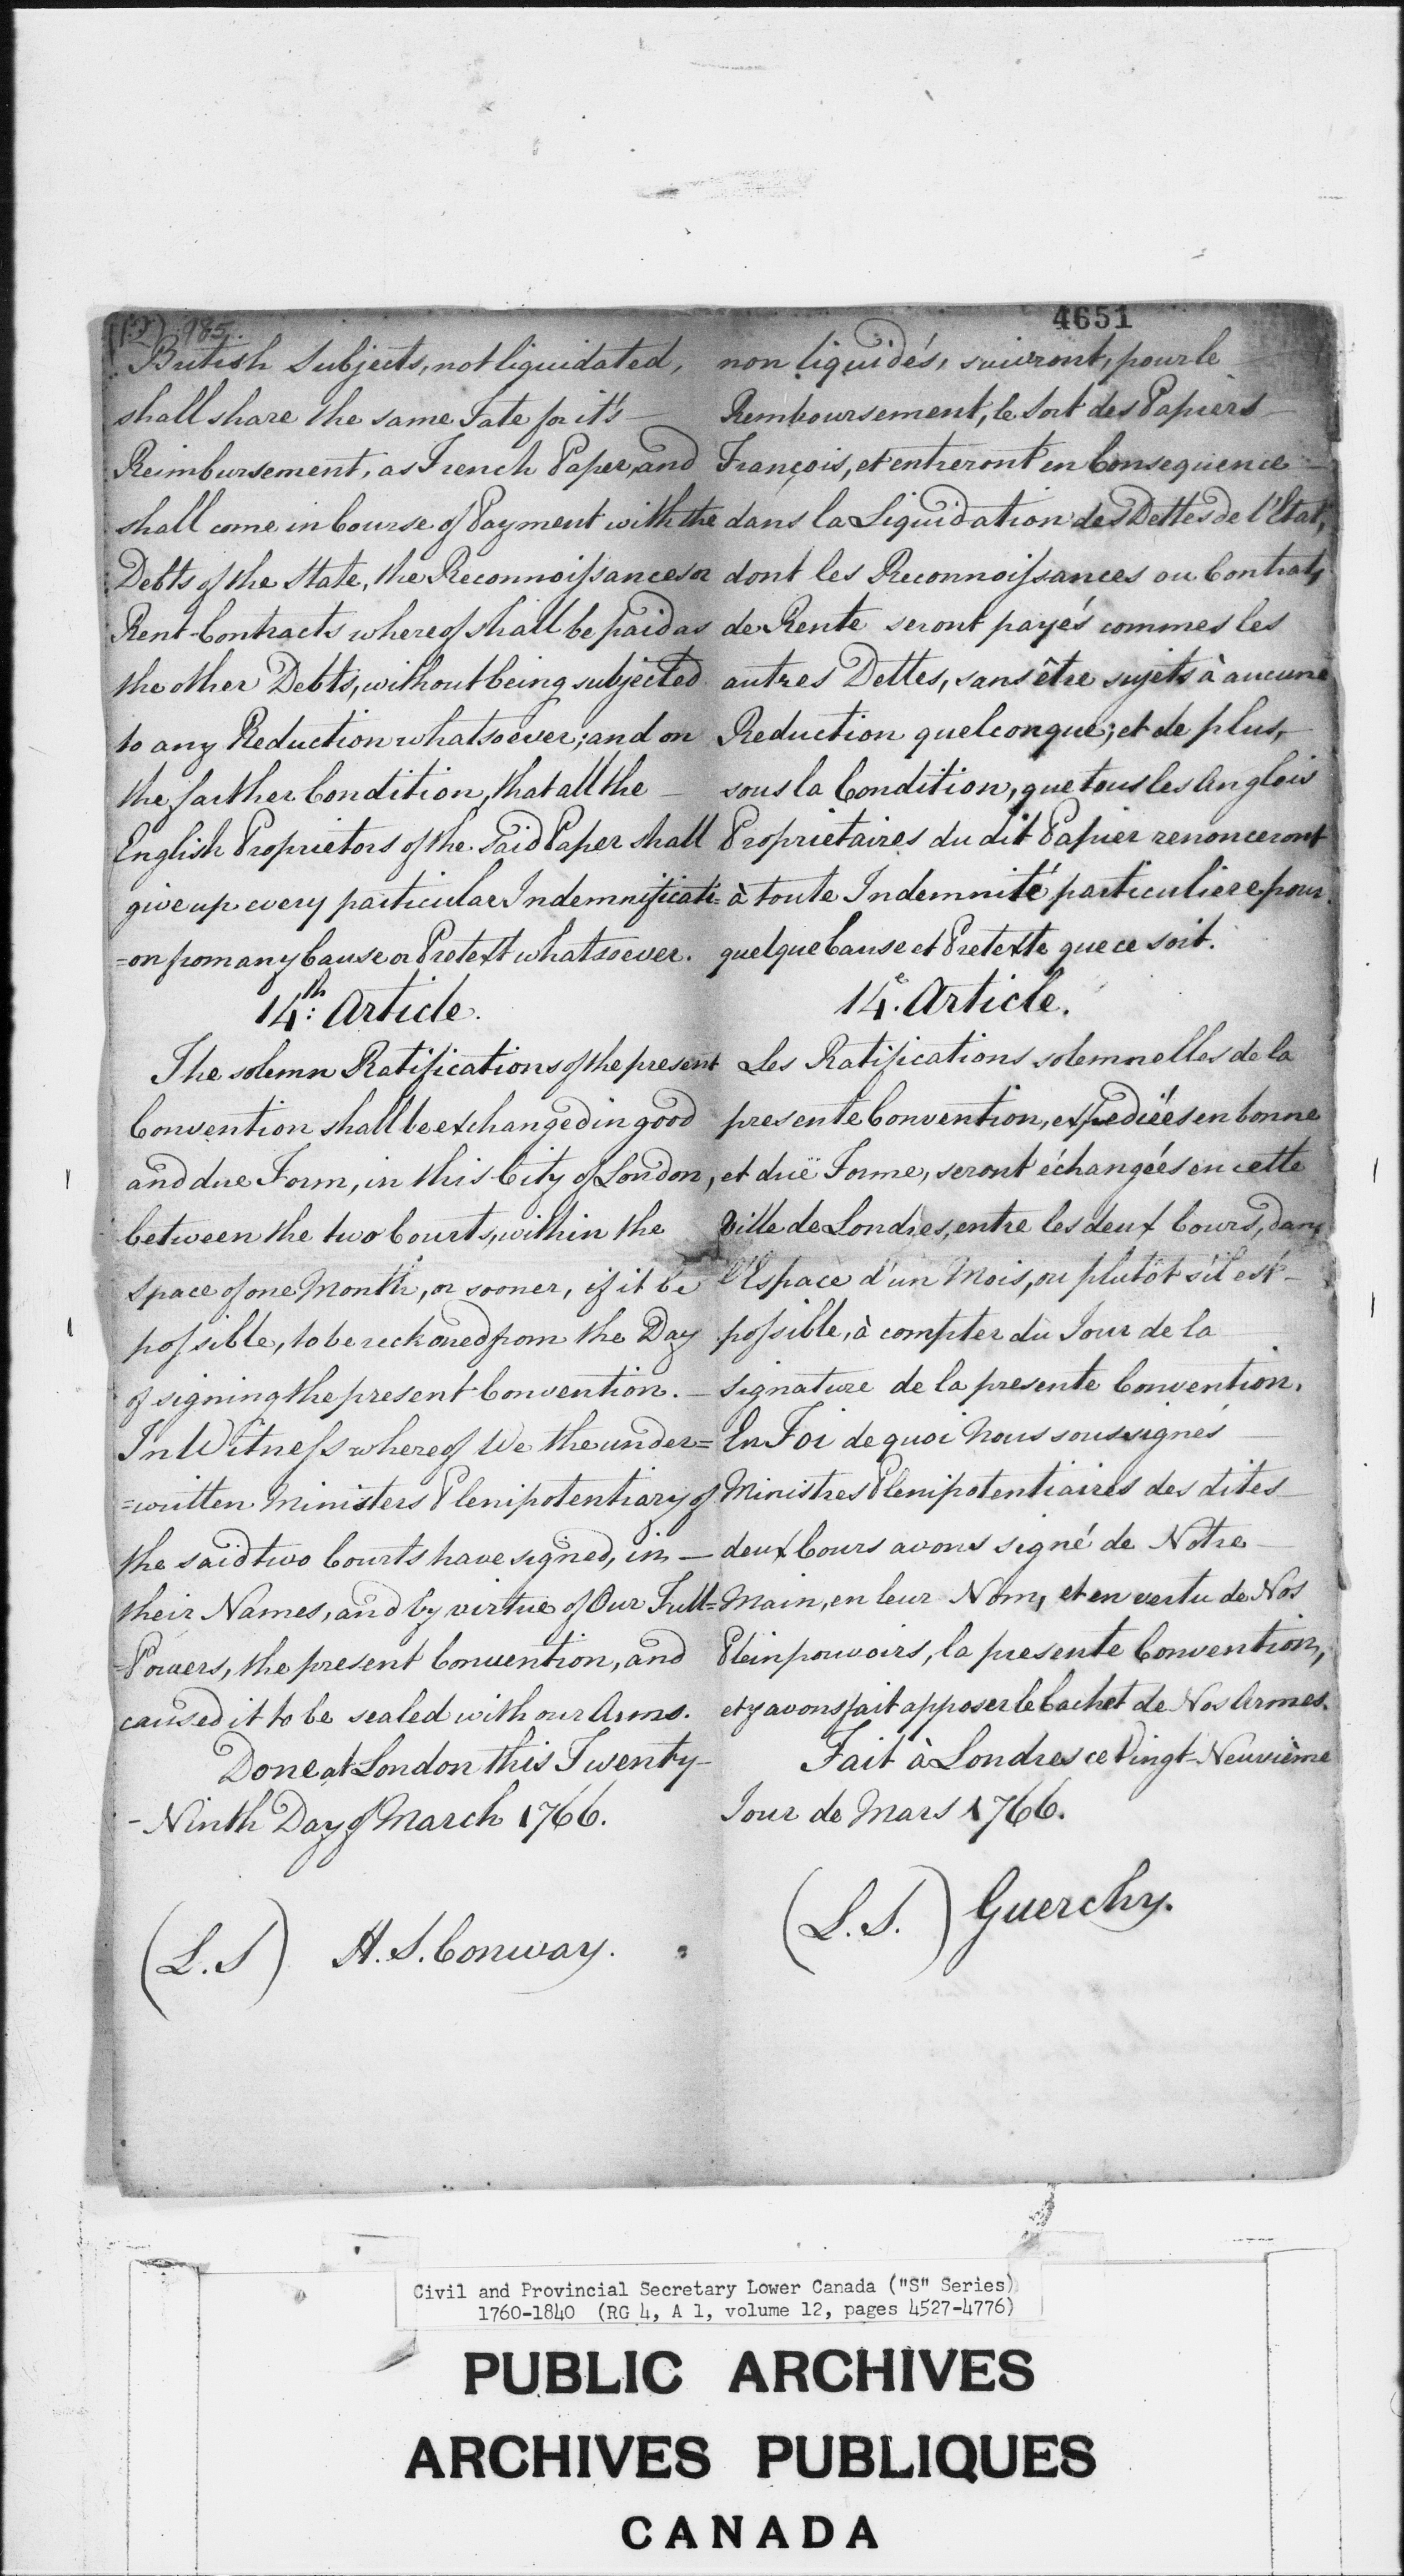 (12) 985.
4651
British Subjects, not liquidated,
shall share the same Fate for it's
Reimbursement, as French Paper, and
shall come in Course of Payment with the
Debts of the State, the Reconnoissances or
Rent-Contracts whereof shall be paid as
the other Debts, without being subjected
to any Reduction whatsoever; and on
the farther Condition, that all the
English Proprietors of the said Paper shall
give up every particular Indemnificati=
=on from any Cause or Pretext whatsoever.
14th: Article.
The solemn Ratifications of the present
Convention shall be exchanged in good
and due Form, in this City of London,
between the two Courts, within the
space of one Month, or sooner, if it be
possible, to be reckoned from the Day
of signing the present Convention.
In Witness whereof We the under=
=written Ministers Plenipotentiary of
the said two Courts have signed, in
their Names, and by virtue of Our Full=
=Powers, the present Convention, and
caused it to be sealed with our Arms.
Done at London this Twenty-
-Ninth Day of March 1766.
(L.S) H. S. Conway.
non liquidés, suivront, pour le
Remboursement, le Sort des Papiers
François, et entreront en Consequence
dans la Liquidation des Dettes de l'Etat,
dont les Reconnoissances ou Contrats
de Rente seront payés commes les
autres Dettes, sans être sujets à aucune
Reduction quelconque; et de plus,
sous la Condition, que tous les Anglois
Proprietaires du dit Papier renonceront
à toute Indemnité particuliere pour
quelque Cause et Pretexte que ce soit.
14e. Article.
Les Ratifications solemnelles de la
presente Convention, expediées en bonne
et duë Forme, seront échangées en cette
Ville de Londres, entre les deux Cours, dans
l'Espace d'un Mois, ou plutôt s'il est
possible, à compter du Jour de la
signature de la presente Convention.
En Foi de quoi Nous soussignés
Ministres Plenipotentiaires des dites
deux Cours avons signé de Notre
Main, en leur Nom, et en vertu de Nos
Pleinpouvoirs, la presente Convention,
et y avons fait apposer le Cachet de Nos Armes.
Fait à Londres ce Vingt-Neuvième
Jour de Mars 1766.
(L.S.) Guerchy.
Civil and Provincial Secretary Lower Canada ("S" Series)
1760-1840 (RG 4, A 1, volume 12, pages 4527-4776)
PUBLIC ARCHIVES
ARCHIVES PUBLIQUES
CANADA